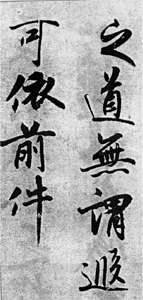 之道無謂遐
可依前件